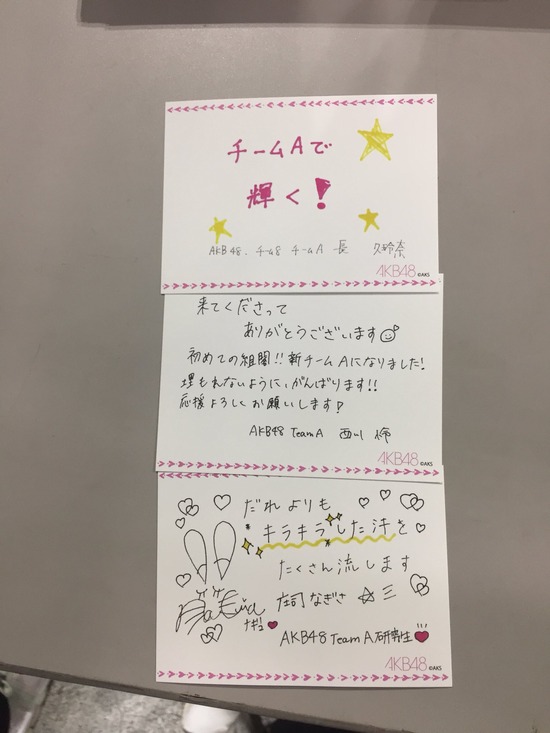 チームAで
輝く!
AKB48. チーム8 チームA 長 久玲奈
AKB48 ©AKS
来てくださって
ありがとうございます
初めての組閣!!新チームAになりました!
埋もれないように、がんばります!!
応援よろしくお願いします!
AKB48 TeamA 西川 怜
AKB48 ©AKS
だれよりも
キラキラした汗を
たくさん流します
庄司なぎさ ☆三
ナギュ
AKB48 Team A 研究生
AKB48 ©AKS